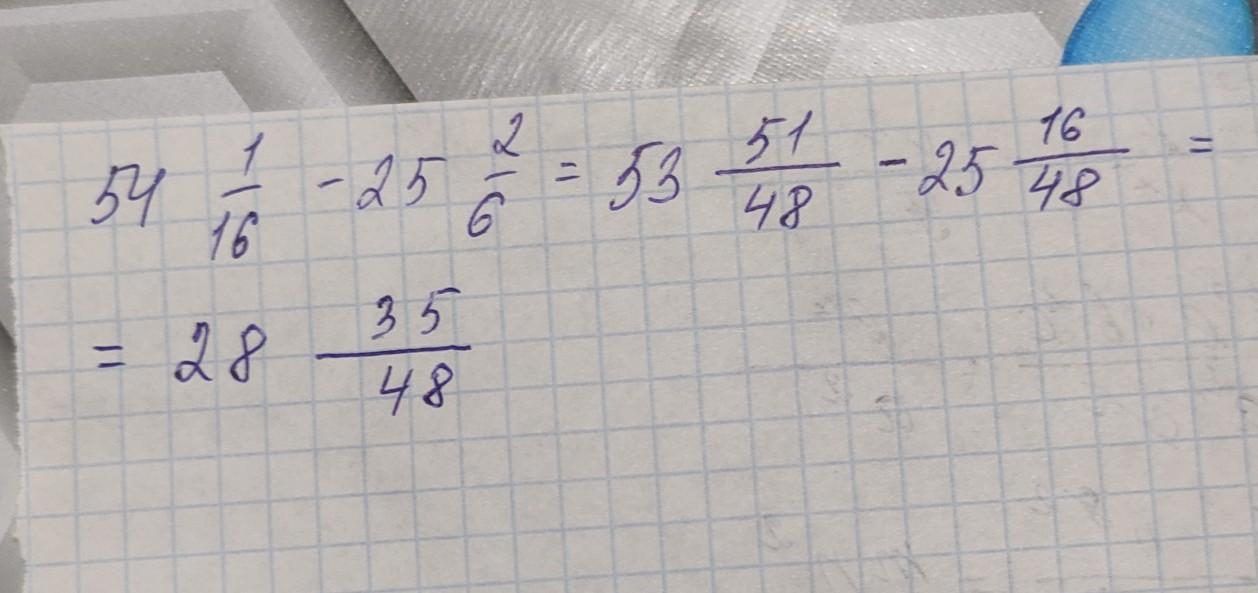 54 1/16 - 25 2/6 = 53 51/48 - 25 16/48 =
= 28 35/48